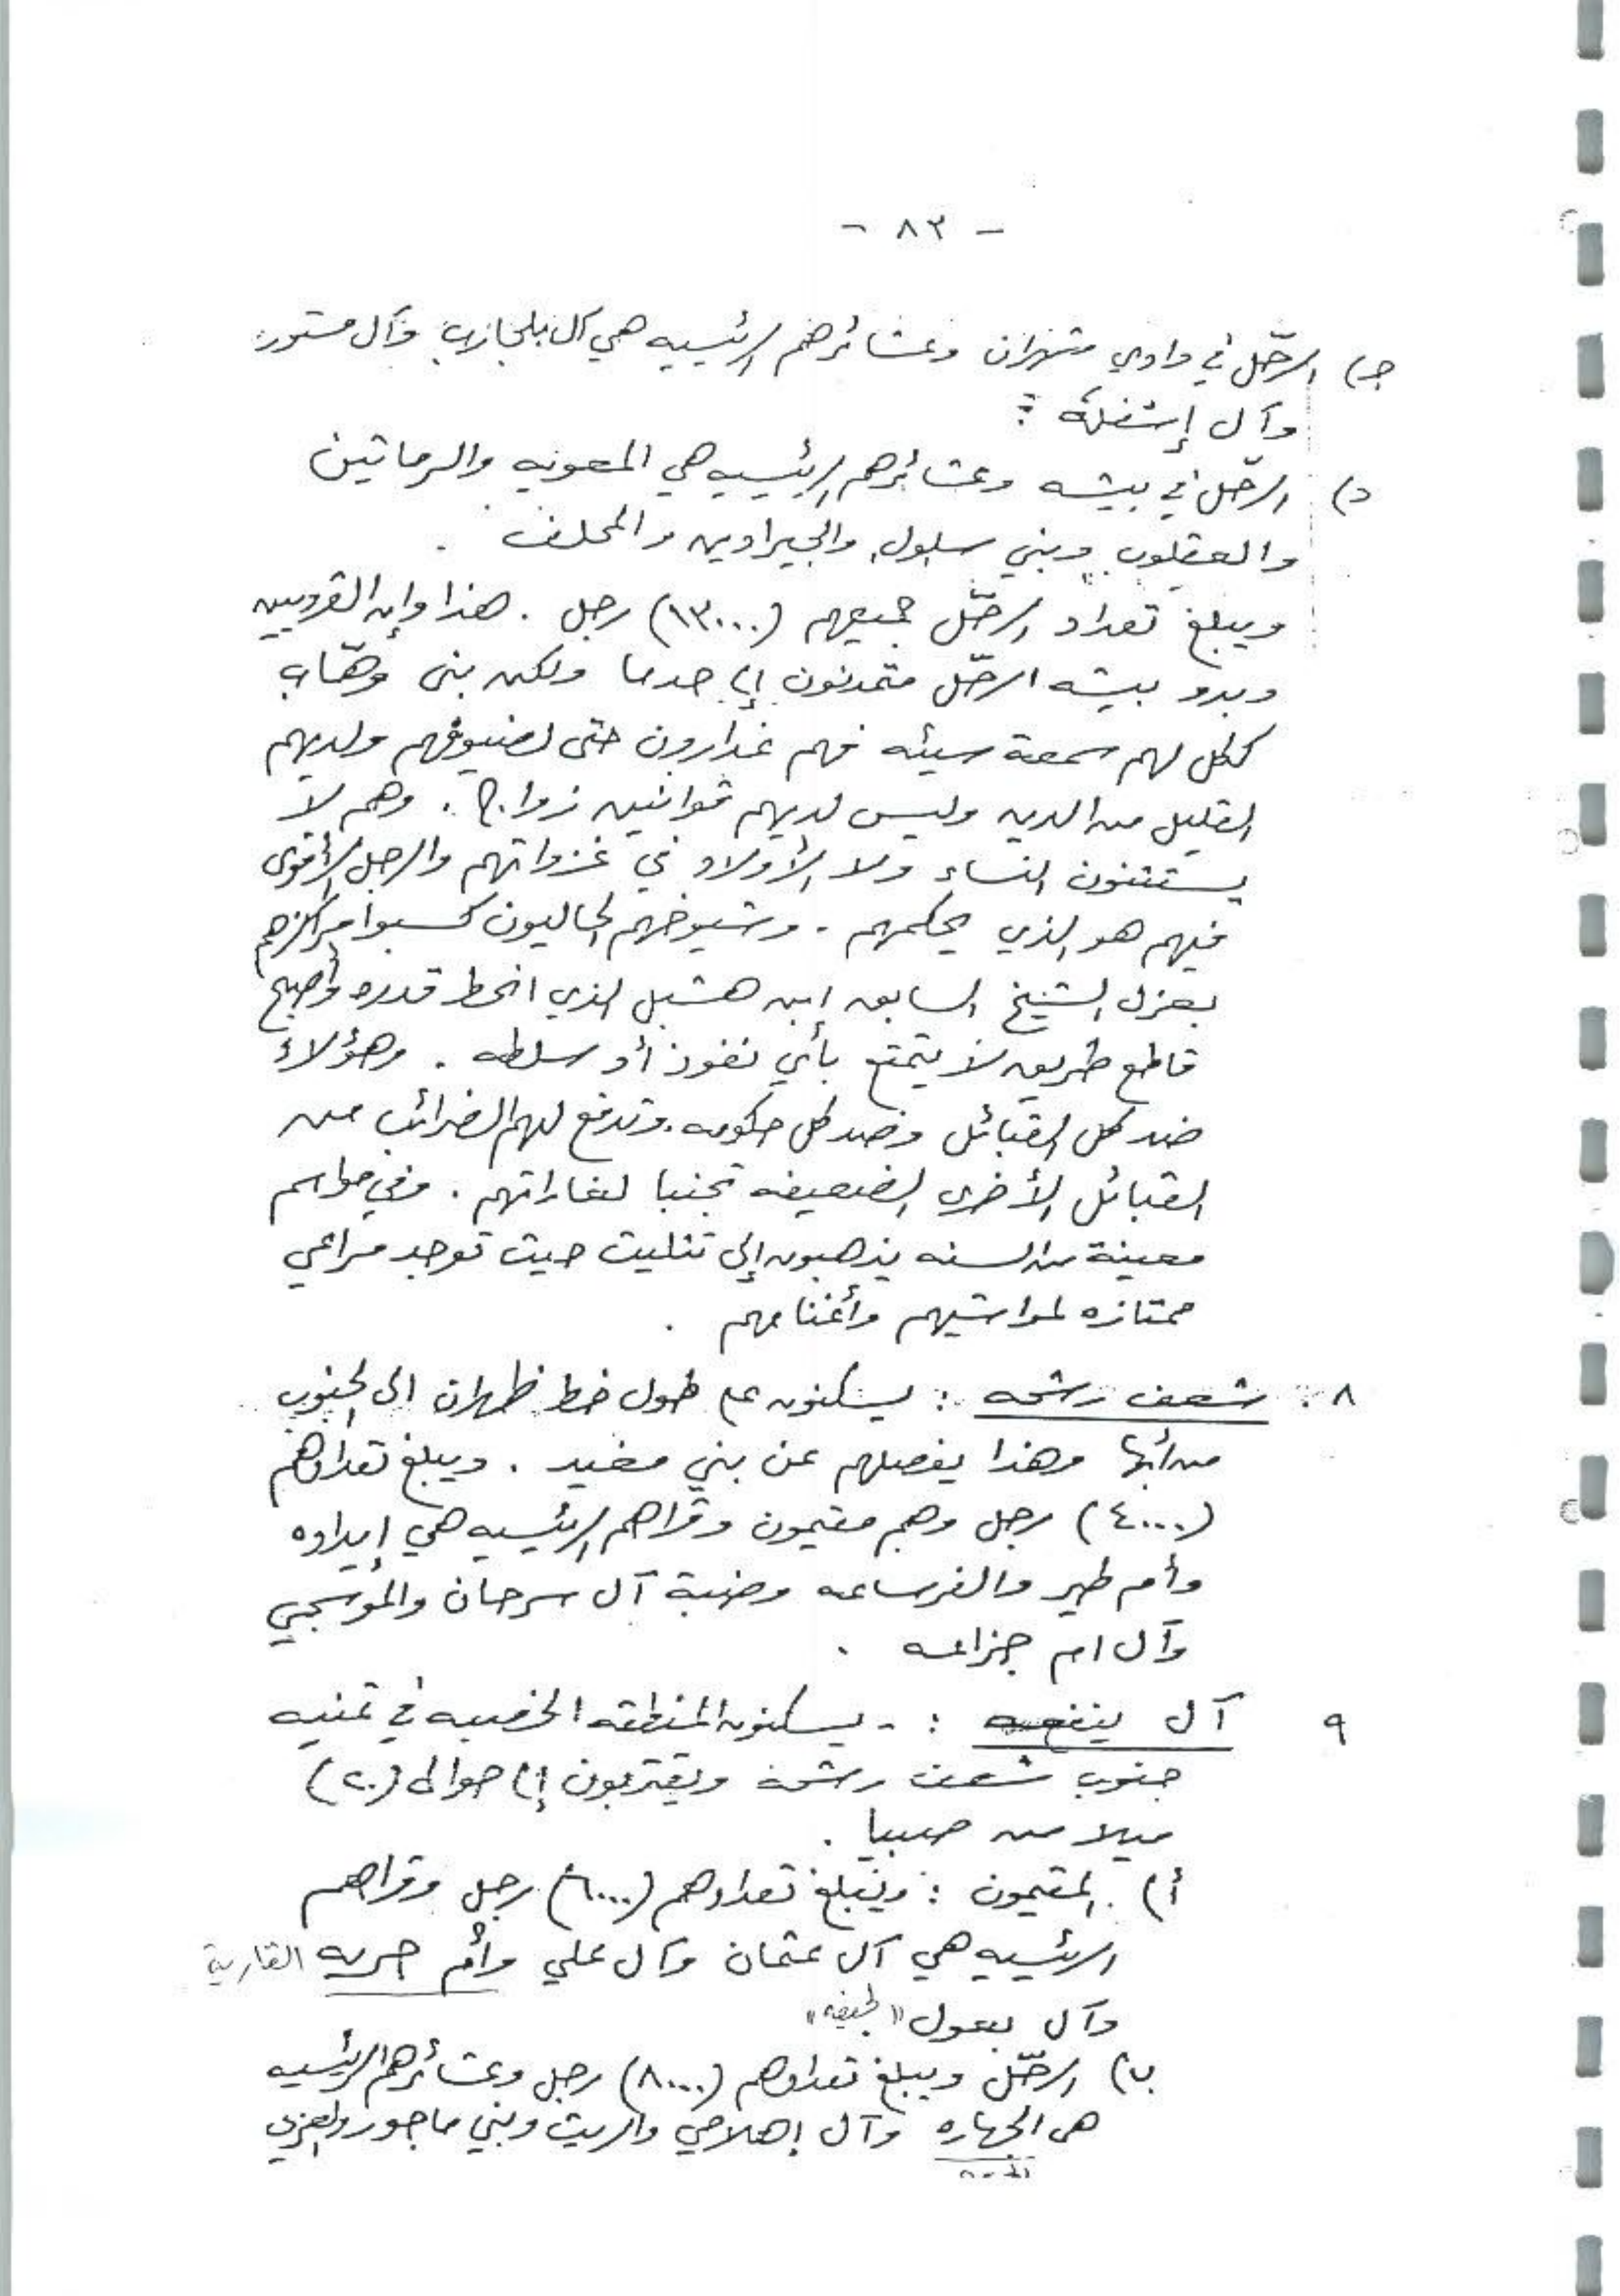 - ٨٣ -
ج) الرحّل في وادي شهران وعشائرهم الرئيسيه هي آل بلحازب وآل مستور
وآل إشغله :
د) الرحّل في بيشه وعشائرهم الرئيسيه هي المعويه والرماثين
والعقلوب وبني سلول والجيراوين والمحلف .
ويبلغ تعداد الرحّل جميعهم (١٣٠٠٠) رجل . هذا وإن القرويين
وبدو بيشه الرحّل متمدنون إلى حد ما ولكن بنى وهّاب
ككل لهم سمعة سيئه فهم غدارون حتى لضيوفهم ولديهم
القليل من الدين وليس لديهم قوانين زواج . وهم لا
يستثنون النساء ولا الأولاد في غزواتهم والرجل الأقوى
فيهم هو الذي يحكمهم . وشيوخهم الحاليون كسبوا مراكزهم
بعزل الشيخ السابق إبن هشبل الذي انحط قدره وأصبح
قاطع طريق لا يتمتع بأي نفوذ أو سلطه . وهؤلاء
ضد كل القبائل وضد كل حكومه . وتدفع لهم الضرائب من
القبائل الأخرى الضعيفه تجنبا لغاراتهم . وفي مواسم
معينة من السنه يذهبون إلى تثليث حيث توجد مراعي
ممتازه لمواشيهم وأغنامهم .
٨ . شعف رشحه : يسكنون على طول خط ظهران الى الجنوب
من أبها وهذا يفصلهم عن بني مغيد . ويبلغ تعدادهم
(٤٠٠٠) رجل وهم مقيمون وقراهم الرئيسيه هي إيداوه
وأم طير والفرساعه وضبة آل سرحان والموسجي
وآل ام جزاعه .
٩ آل ينفعه : - يسكنون المنطقه الخصبه في تمنيه
جنوب شعف رشحه ويقتربون إلى حوالى (٢٠)
ميلا من صبيا .
أ) المقيمون : ويبلغ تعدادهم (٦٠٠٠) رجل وقراهم
الرئيسيه هي آل عثمان وآل علي وأم حريه القارية
وآل بعول "لحيفه"
ب) الرحّل ويبلغ تعدادهم (٨٠٠٠) رجل وعشائرهم الرئيسيه
هى الجهاره وآل إهلامي والريث وبني ماجور والعزي